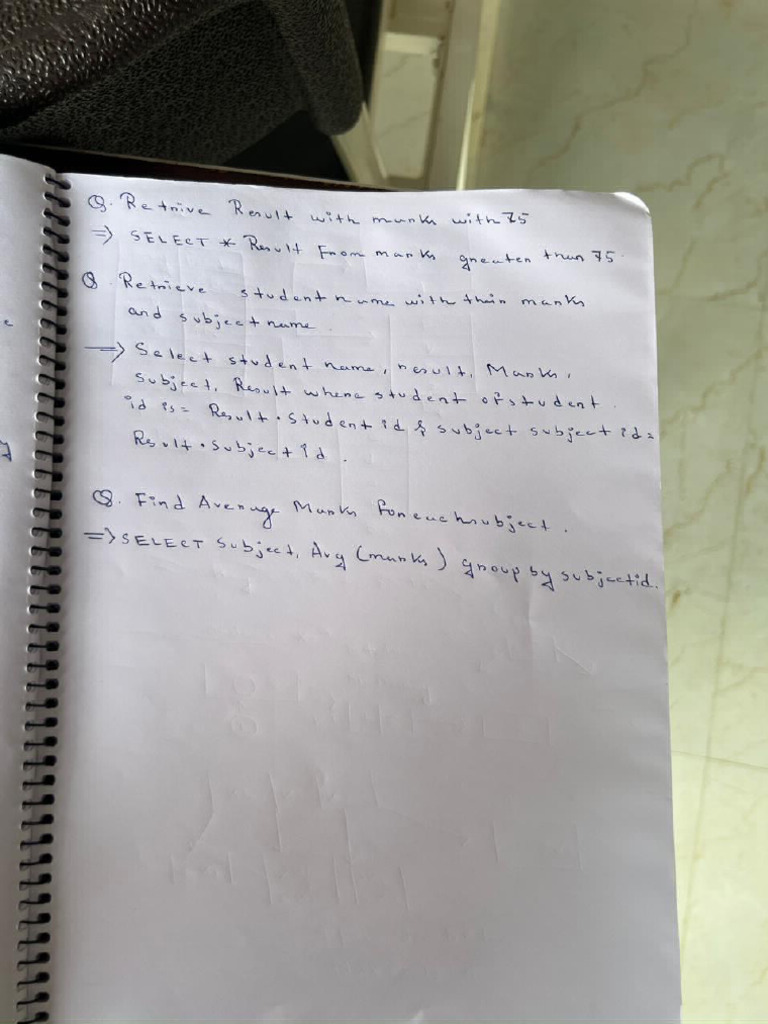 Q. Retrive Result with marks with 75
=> SELECT * Result From marks greater than 75.
Q. Retrieve student name with their marks
and subject name.
=> Select student name, result, Marks,
Subject, Result where student of student
id is = Result.Student id & subject subject id =
Result.subject id.
Q. Find Average Marks for each subject.
=> SELECT Subject, Avg (marks) group by subjectid.